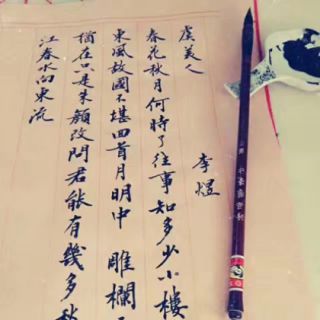 虞美人 李煜
春花秋月何時了往事知多少小樓
東風故國不堪回首月明中雕欄
猶在只是朱顏改問君能有幾多
江春水向東流